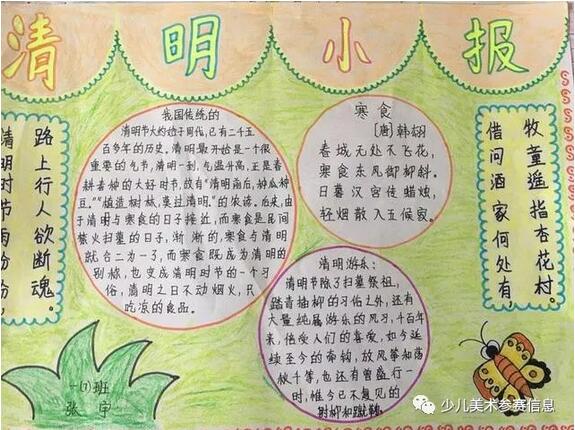 清明小报
清明时节雨纷纷,
路上行人欲断魂。
我国传统的
清明节大约始于周代,已有二千五
百多年的历史。清明最开始是一个很
重要的节气,清明一到,气温升高,正是春
耕春种的大好时节,故有“清明前后,种瓜种
豆。”“植造树林,莫过清明。”的农谚。后来,由
于清明与寒食的日子接近,而寒食是民间
禁火扫墓的日子,渐渐的,寒食与清明
就合二为一了,而寒食既成为清明的
别称,也变成清明时节的一个习
俗,清明之日不动烟火,只
吃凉的食品。
寒食
[唐]韩翃
春城无处不飞花,
寒食东风御柳斜。
日暮汉宫传蜡烛,
轻烟散入五侯家。
清明游乐:
清明节除了扫墓祭祖,
踏青插柳的习俗之外,还有
大量纯属游乐的风习,千百年
来,倍受人们的喜爱,如今延
续至今的奇钩,放风筝和荡
秋千等,也还有曾盛行一
时,惟今已不复见的
射柳和蹴鞠。
借问酒家何处有,
牧童遥指杏花村。
一(1)班
张宇
少儿美术参赛信息